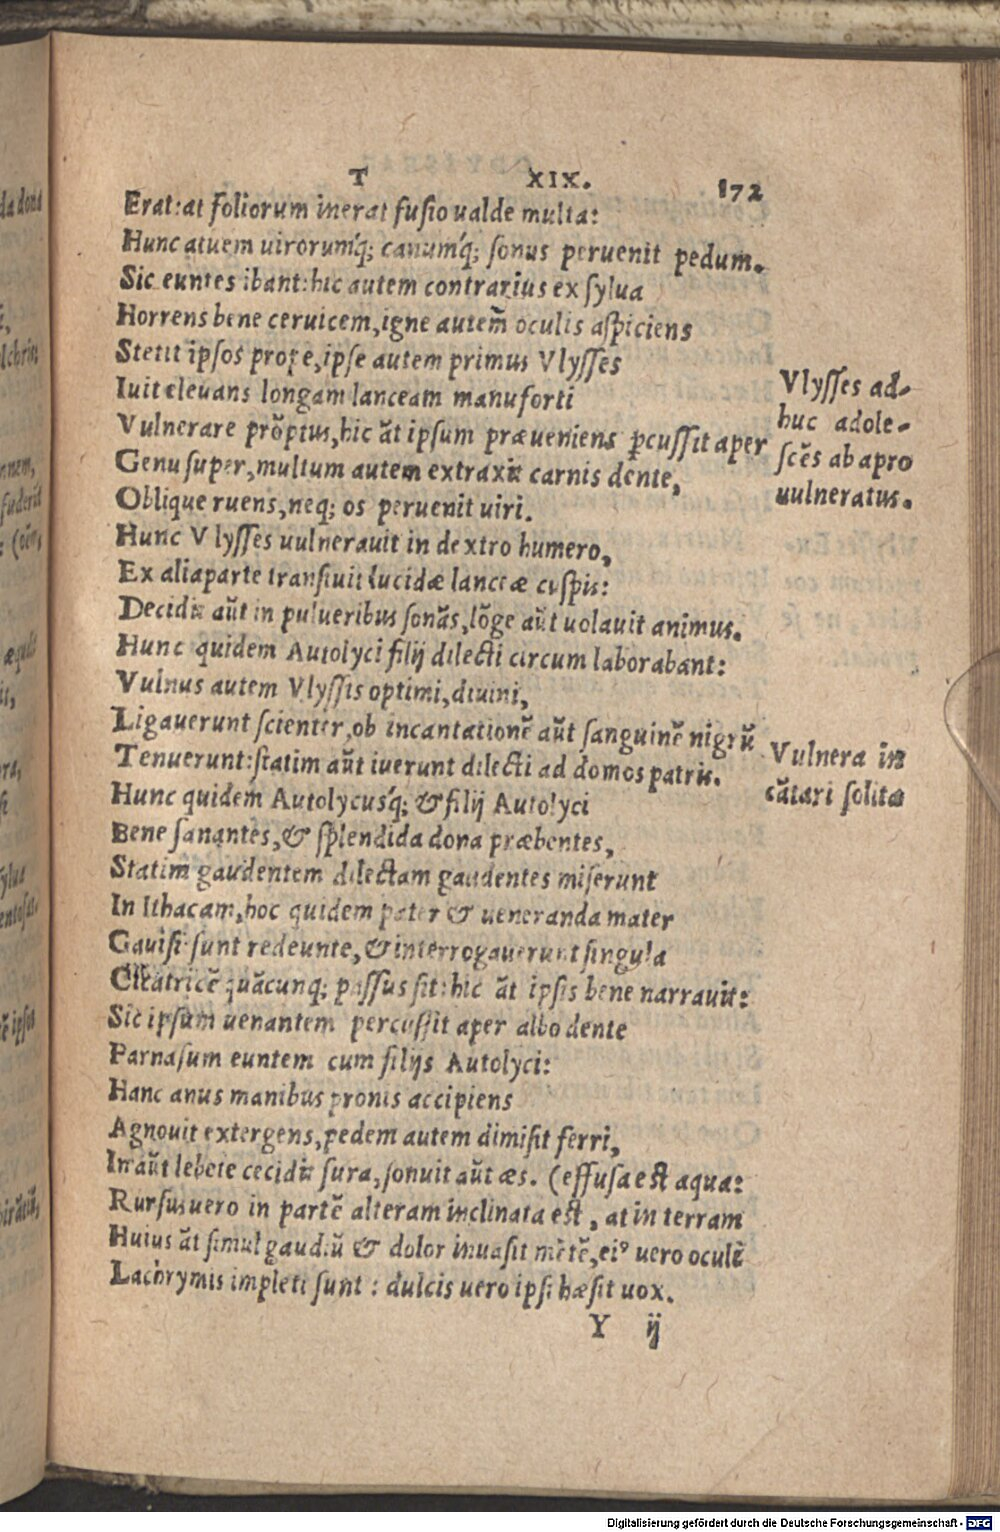 T XIX. 172
Erat:at foliorum inerat fusio ualde multa:
Hunc atuem uirorumq́; canumq́; sonus peruenit pedum.
Sic euntes ibant:hic autem contrarius ex sylua
Horrens bene ceruicem,igne autem̃ oculis aspiciens
Stetit ipsos prope,ipse autem primus Vlysses
Iuit eleuans longam lanceam manuforti
Vulnerare prõptus,hic ãt ipsum præueniens ꝑcussit aper
Genu super,multum autem extraxit carnis dente,
Oblique ruens,neq; os peruenit uiri.
Hunc Vlysses uulnerauit in dextro humero,
Ex aliaparte transiuit lucidæ lanceæ cuspis:
Decidit aũt in pulueribus sonãs,lõge aũt uolauit animus.
Hunc quidem Autolyci filij dilecti circum laborabant:
Vulnus autem Vlyssis optimi,diuini,
Ligauerunt scienter,ob incantationẽ aũt sanguinẽ nigrũ
Tenuerunt:statim aũt iuerunt dilecti ad domos patris.
Hunc quidem Autolycusq́; & filij Autolyci
Bene sanantes,& splendida dona præbentes,
Statim gaudentem dilectam gaudentes miserunt
In Ithacam,hoc quidem pater & ueneranda mater
Gauisi sunt redeunte,& interrogauerunt singula
Cicatricẽ quãcunq; passus sit:hic ãt ipsis bene narrauit:
Sic ipsum uenantem percussit aper albo dente
Parnasum euntem cum filijs Autolyci:
Hanc anus manibus pronis accipiens
Agnouit extergens,pedem autem dimisit ferri,
In aũt lebete cecidit sura,sonuit aũt æs. (effusa est aqua:
Rursus uero in partẽ alteram inclinata est, at in terram
Huius ãt simul gaudiũ & dolor inuasit mẽtẽ,eiꝰ uero oculi
Lachrymis impleti sunt: dulcis uero ipsi hæsit uox.
Y ij
Vlysses ad-
huc adole-
scẽs ab apro
uulneratus.
Vulnera in
cãtari solita
da dona
lchrin
æquali
Digitalisierung gefördert durch die Deutsche Forschungsgemeinschaft - DFG